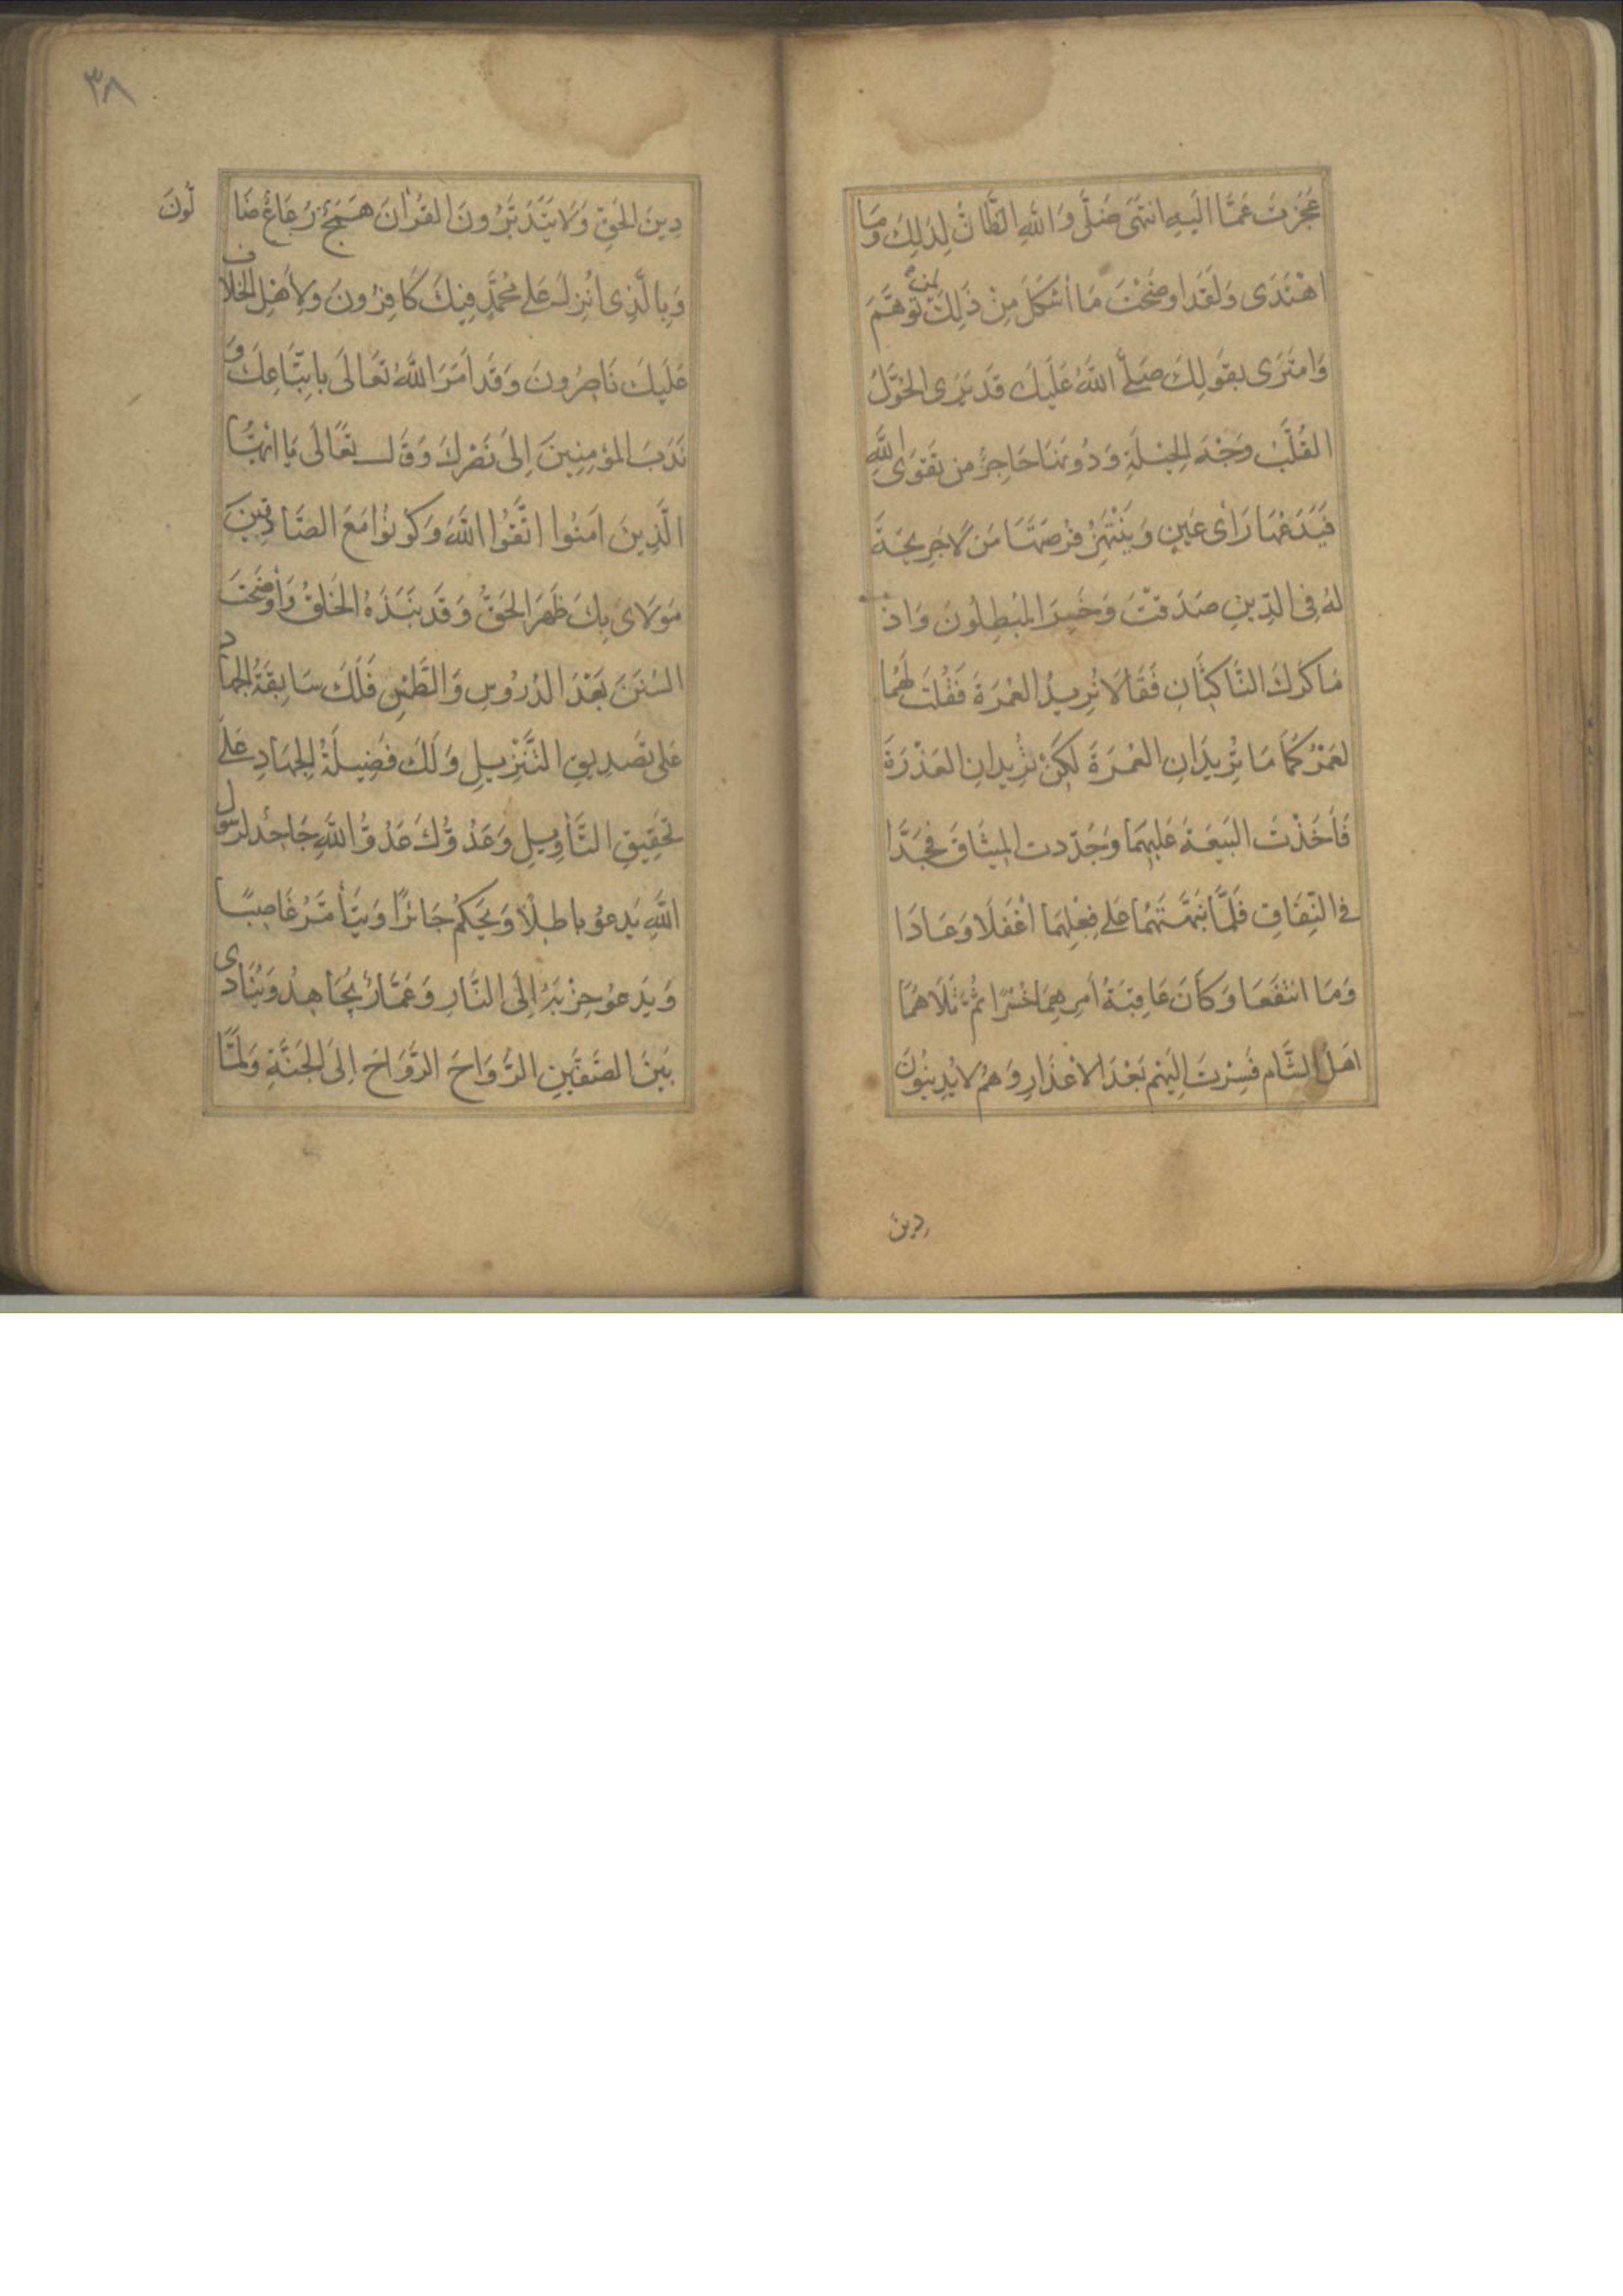 عَجَزْتَ عَمَّا اِلَيهِ انتَهى ضَلَّ وَاللّٰهِ الظَّانُّ لِذلِكَ وَمَا
اهْتَدَى وَلَقَد اوضَحْتَ مَا اَشكَلَ مِنْ ذَلِكَ لِمَنْ تَوَهَّمَ
وَامتَرَى بقَولِكَ صَلَّى اللّٰهُ عَلَيكَ قَد يَرَى الحُوَّلُ
القُلَّبُ وَجْهَ الحِيْلَةِ وَدُونَهَا حَاجِزٌ من تَقوَى اللّٰهِ
فَيَدَعُهَا رَاْىَ عَينٍ وَيَنْتَهِزُ فُرْصَتَهَا مَن لَا جَرِيحَةَ
لَهُ فِى الدِّينِ صَدَقْتَ وَخَسِرَ المُبطِلُونَ وَاذ
مَاكَرَكَ النَّاكِثَانِ فَقَالَا نُرِيدُ العُمْرَةَ فَقُلتَ لَهُمَا
لعَمْرُكُمَا مَا تُرِيدَانِ العُمْرَةَ لكِنْ تُرِيدانِ الغَدْرَةَ
فَاَخَذْتَ البَيعَةَ عَلَيهِمَا وَجَدَّدت المِيثَاقَ فَجَدَّا
فى النِّفَاقِ فَلَمَّا نَبَّهتَهُمَا عَلى فِعْلِهِمَا اَغْفَلَا وَعَادَا
وَمَا انتَفَعَا وَكَانَ عَاقِبَةُ اَمرِهِمَا خُسْرًا ثُمَّ تَلَاهُمَا
اَهْلُ الشَّام فَسِرْتَ اِلَيهِم بَعْدَ الاِعْذَارِ وَهُمْ لا يُدِينُونَ
دِين
٣٨
دِينَ الحَقِّ وَلَا يَتَدَبَّرُونَ القُرْانَ هَمَجٌ رُعَاعٌ ضَا
لُّونَ
وَبِالَّذِى اُنزِلَ عَلى مُحَمَّدٍ فِيكَ كَافِرُونَ وَلِأَهْلِ الخِلَافِ
عَلَيكَ نَاصِرُونَ وَقَد اَمَرَ اللّٰهُ تَعَالَى بِاتِّبَاعِكَ وَ
نَدَبَ المؤمِنِينَ اِلَى نَصْرِكَ وَقَالَ تَعَالَى يَا اَيُّهَا
الَّذِينَ امَنُوا اتَّقُوا اللّٰهَ وَكُونُوا مَعَ الصَّادِقِينَ
مَولَاىَ بِكَ ظَهَرَ الحَقُّ وَقَد نَبَذَهُ الخَلقُ وَاَوضَحتَ
السُنَنَ بَعْدَ الدُرُوسِ وَالطَّمْسِ فَلَكَ سَابِقَةُ الجِهَادِ
عَلى تَصدِيقِ التَّنْزِيلِ وَلَكَ فَضِيلَةُ الجِهَادِ عَلَى
تَحْقِيقِ التَّأوِيلِ وَعَدُوُّكَ عَدُوُّ اللّٰهِ جَاحِدٌ لرَسُولِ
اللّٰهِ يَدعُو باطِلًا وَيَحكُمُ جَائرًا وَيَتَأَمَّرُ غَاصِبًا
وَيَدعُو حِزْبَهُ اِلَى النَّارِ وَعَمَّارٌ يُجَاهِدُ وَيُنَادِى
بَينَ الصَّفَّينِ الرَّوَاحَ الرَّوَاحَ اِلىَ الجَنَّةِ وَلَمَّا